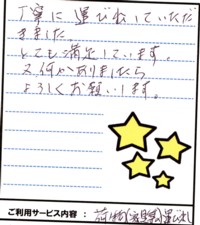 丁寧に運び出していただ
きました。
とても満足しています。
又何かありましたら
よろしくお願いします。
ご利用サービス内容：